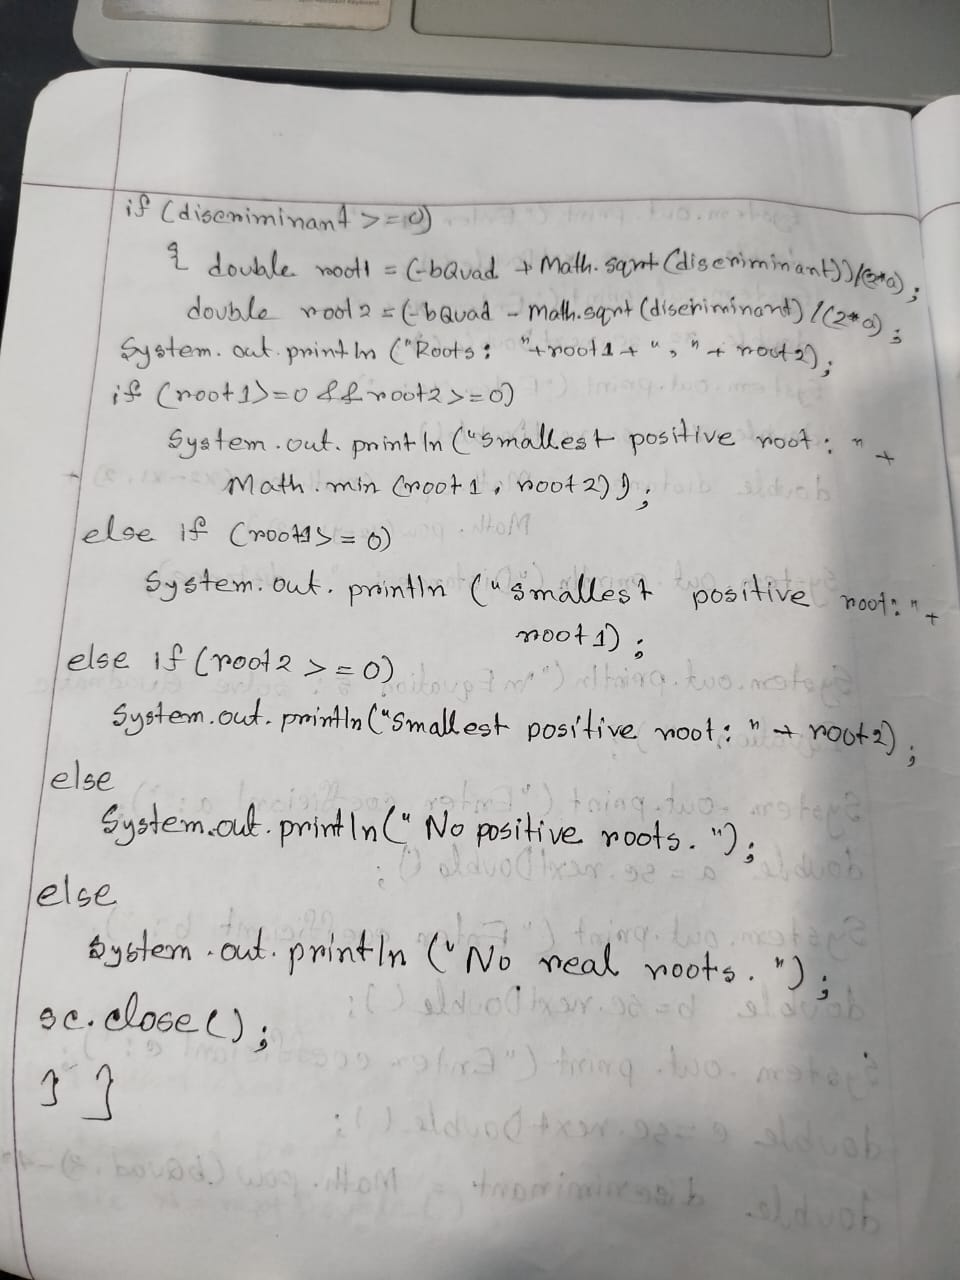 if (discriminant >= 0)
{ double root1 = (-bQuad + Math.sqrt (discriminant)) / (2*a);
double root2 = (-bQuad - Math.sqrt (discriminant) / (2*a);
System.out.println ("Roots: "+root1+ ", " + root2);
if (root1>=0 && root2>=0)
System.out.println ("Smallest positive root: " +
Math.min (root1, root2));
else if (root1>=0)
System.out.println ("Smallest positive root: " +
root1);
else if (root2 >=0)
System.out.println("Smallest positive root: " + root2);
else
System.out.println(" No positive roots. ");
else
System.out.println ("No real roots. ");
sc.close();
} }